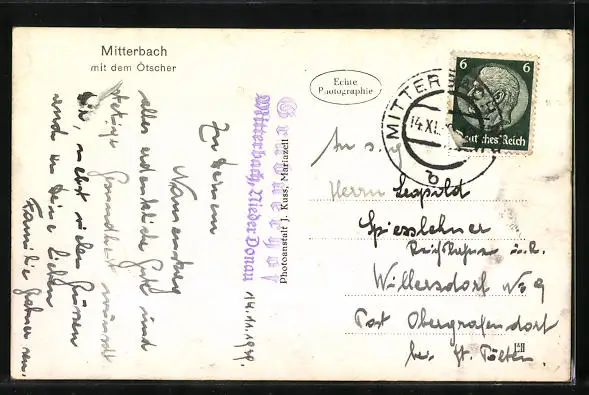 Mitterbach
mit dem Ötscher
Echte
Photographie
6 6
Deutsches Reich
MITTERBACH
14.XI.
b
Grubenegg
Mitterbach, Nieder Donau
Photoanstalt J. Kuss, Mariazell
14.11.1939.
Zu Deinem
Namenstag
alles erdenkliche Gute und
stetige Gesundheit wünscht
Dir, nebst vielen Grüssen
und an Deine Lieben
Familie
An
Herrn Leopold
Spiesslehner
i.R.
Willersdorf No 9
Post Obergrafendorf
bei St. Pölten.